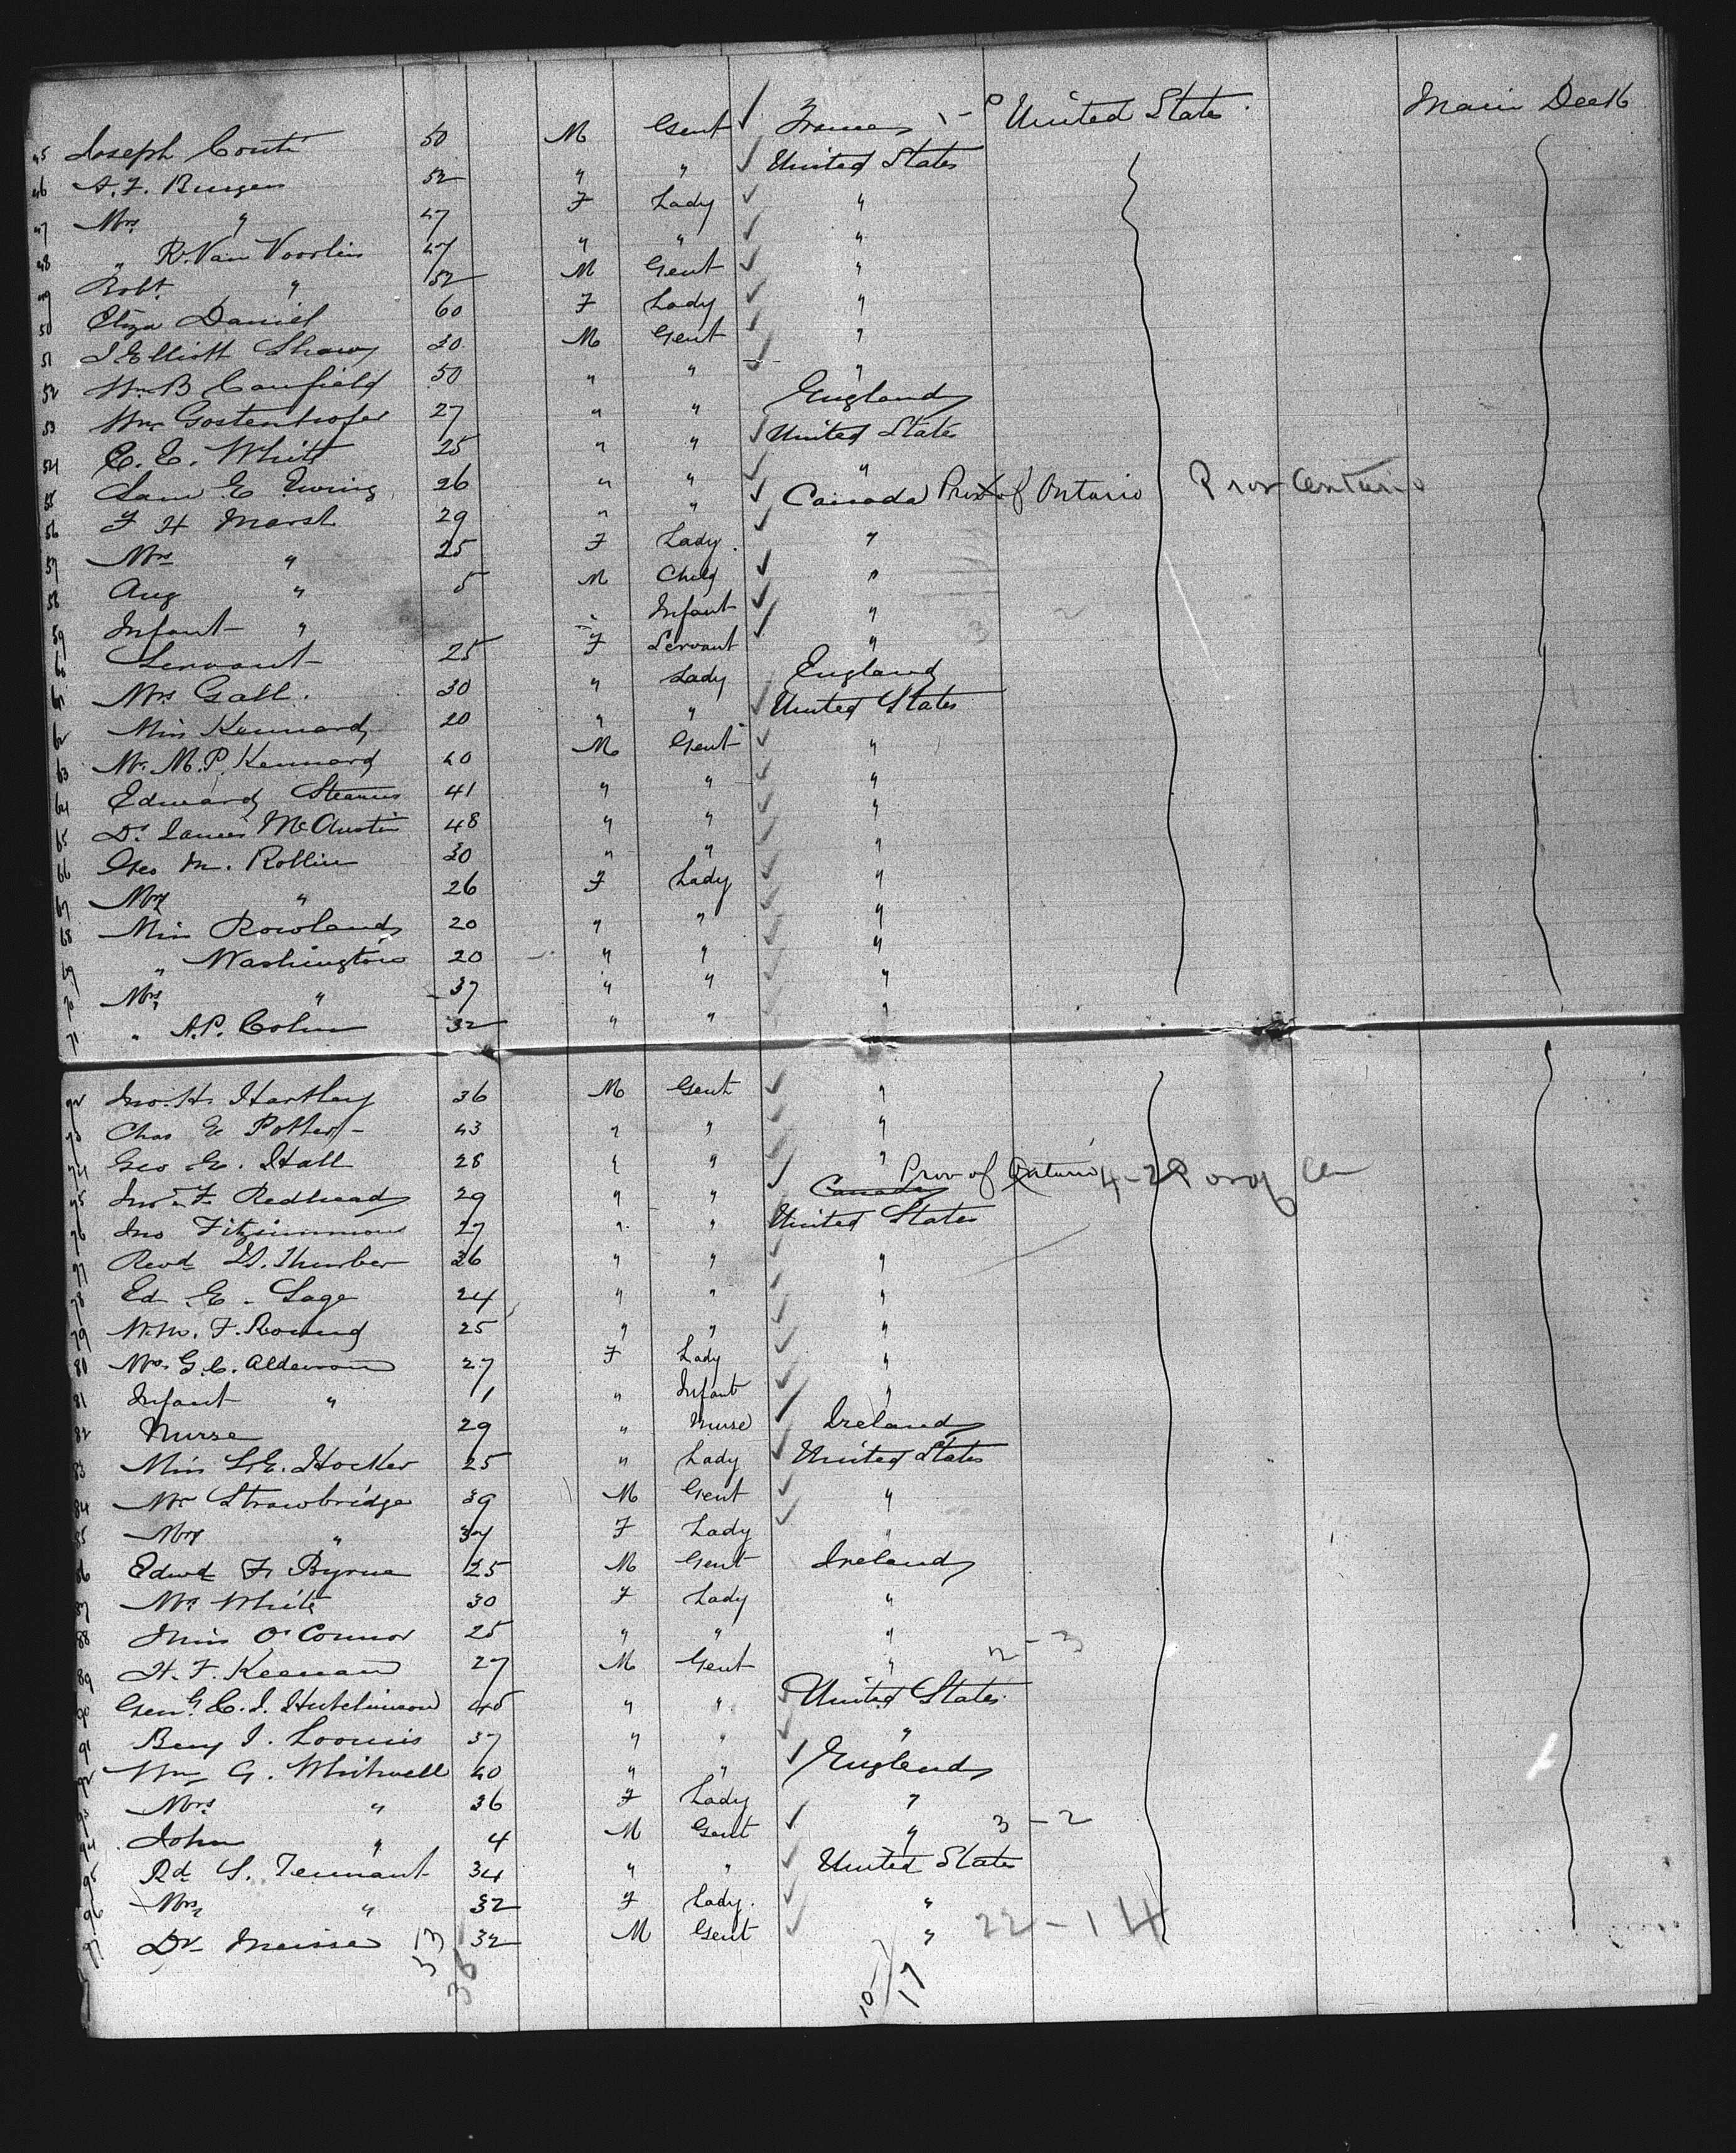 45 Joseph Conti 50 M Gent ✓ France 1 - 0 United States Main Deck
46 A. F. 52 " " ✓ United States
47 Mrs " 47 F Lady ✓ "
48 " R. Van Voorlis 47 " " ✓ "
49 Robt. " 52 M Gent ✓ "
50 Eliza Daniel 60 F Lady ✓ "
51 J Elliott Shaw 30 M Gent ✓ "
52 Wm B Canfield 50 " " ✓ "
53 Wm Gostenhofer 27 " " England
54 C. E. White 25 " " ✓ United States
55 Sam E Ewing 26 " " ✓ "
56 F H Marsh 29 " " ✓ Canada Prov of Ontario Prov Ontario
57 Mrs " 25 F Lady ✓ "
58 Aug " 5 M Child ✓ "
59 Infant " " Infant ✓ "
60 Servant 25 F Servant ✓ "
61 Mrs Gall 30 " Lady England
62 Miss Kennard 20 " " ✓ United States
63 Mr. M. P. Kennard 40 M Gent ✓ "
64 Edward Stearns 41 " " ✓ "
65 Dr. James McAustin 48 " " ✓ "
66 Geo M. Rollin 30 " " ✓ "
67 Mrs " 26 F Lady ✓ "
68 Miss Rowland 20 " " ✓ "
69 " Washington 20 " " ✓ "
70 Mrs " 37 " " ✓ "
71 " A. P. 32 " " "
72 Jno. H. Hartley 36 M Gent ✓ "
73 Chas E Potter 43 " " ✓ "
74 Geo E. Hall 28 " " ✓ "
75 Jno F Redhead 29 " " ✓ Canada Prov of Ontario 4-2
76 Jno Fitzimmons 27 " " ✓ United States
77 Revd G. Thurber 36 " " ✓ "
78 Ed. E. Sage 24 " " ✓ "
79 Wm. F. Round 25 " " ✓ "
80 Mrs. G. C. Alderson 27 F Lady ✓ "
81 Infant " 1 " Infant ✓ "
82 Nurse 29 " Nurse ✓ Ireland
83 Miss L. E. Hocker 25 " Lady ✓ United States
84 Mr Strawbridge 39 M Gent ✓ "
85 Mrs " 34 F Lady ✓ "
86 Edwd F. Byrne 25 M Gent Ireland
87 Mrs White 30 F Lady "
88 Miss O'Connor 25 " " "
89 H. F. Keenan 27 M Gent " 2 - 3
90 Genl. C. I. Hutchinson 45 " " ✓ United States
91 Benj J. Loomis 37 " " ✓ "
92 Wm G. Whitwell 40 " " ✓ England
93 Mrs " 36 F Lady "
94 John " 4 M Gent ✓ " 3 - 2
95 Rd S. Tennant 34 " " ✓ United States
96 Mrs " 32 F Lady ✓ "
97 Dr 32 M Gent ✓ " 22 - 14
13
33 36 10/17